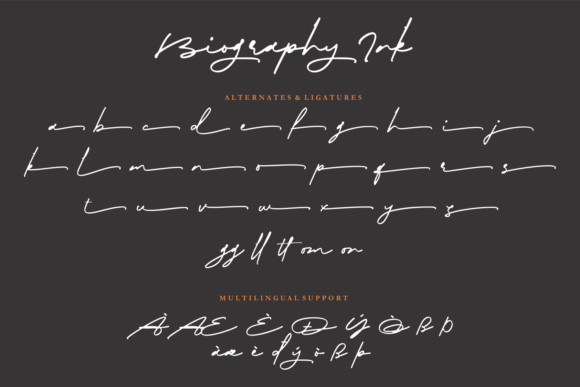 Biography Ink
ALTERNATES & LIGATURES
a b c d e f g h i j
k l m n o p q r s
t u v w x y z
gg ll tt om on
MULTILINGUAL SUPPORT
À Æ È Ð Ý Ò ß Þ
à æ è ð ý ò ß þ